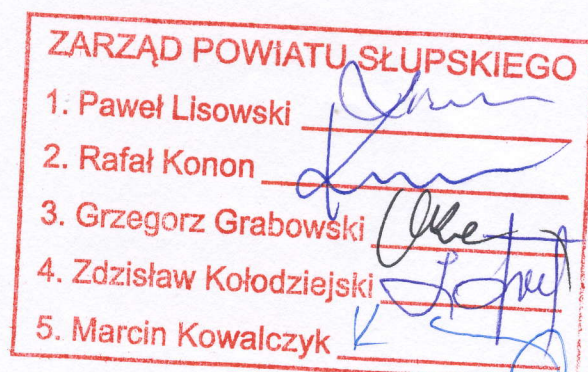 ZARZĄD POWIATU SŁUPSKIEGO
1. Paweł Lisowski
2. Rafał Konon
3. Grzegorz Grabowski
4. Zdzisław Kołodziejski
5. Marcin Kowalczyk